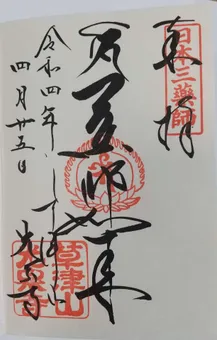 奉拝
日本三薬師
瓦薬師如来
草津山
光泉寺
令和四年
四月廿五日